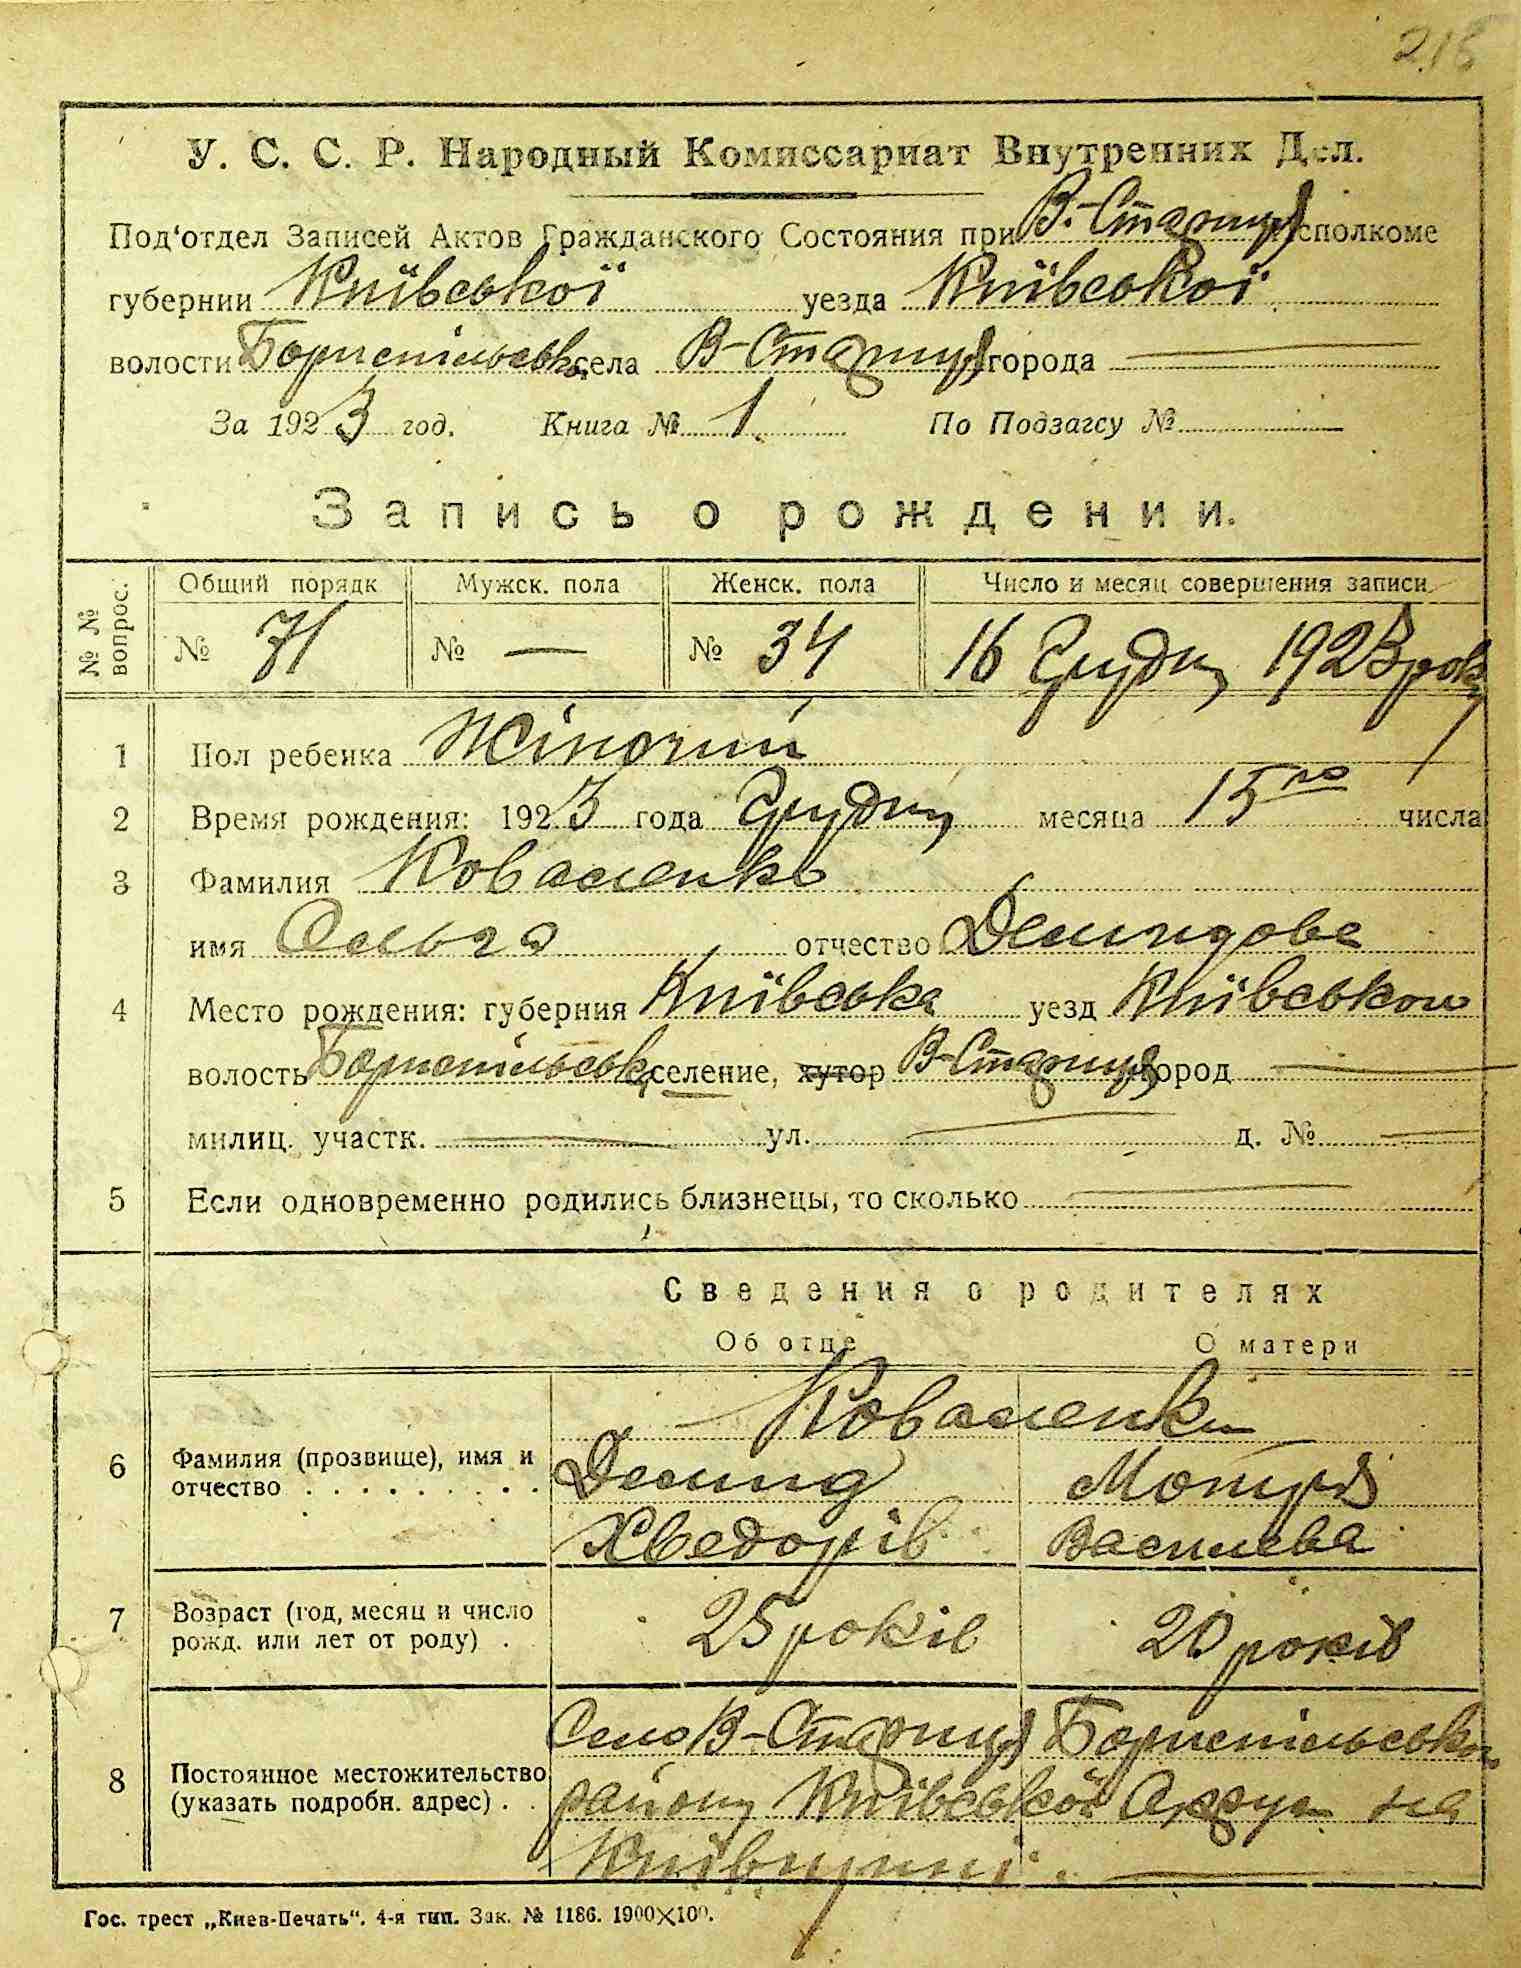 215
У. С. С. Р. Народный Комиссариат Внутренних Дел.
Под'отдел Записей Актов Гражданского Состояния при В.-Стариця Исполкоме
губернии Київської уезда Київської
волости Бориспільськ села В-Стариця города —
За 1923 год. Книга № 1 По Подзагсу №
Запись о рождении.
№ № вопрос. Общий порядк Мужск. пола Женск. пола Число и месяц совершения записи
№ 71 № — № 34 16 Грудня 1923 року
1 Пол ребенка Жіночий
2 Время рождения: 1923 года Грудня месяца 15го числа
3 Фамилия Коваленко
имя Ольга отчество Демидова
4 Место рождения: губерния Київська уезд Київською
волость Бориспільськ селение, хутор В-Стариця город —
милиц. участк. — ул. — д. № —
5 Если одновременно родились близнецы, то сколько —
Сведения о родителях
Об отце О матери
Коваленки
6 Фамилия (прозвище), имя и Демид Мотря
отчество . . . . . . . . . Хведорів Василева
7 Возраст (год, месяц и число
рожд. или лет от роду) . 25 років 20 років
Село В-Стариця Бориспільськ
8 Постоянное местожительство району Київської Округи на
(указать подробн. адрес) . . Київщині. —
Гос. трест „Киев-Печать“. 4-я тип. Зак. № 1186. 1900×100.